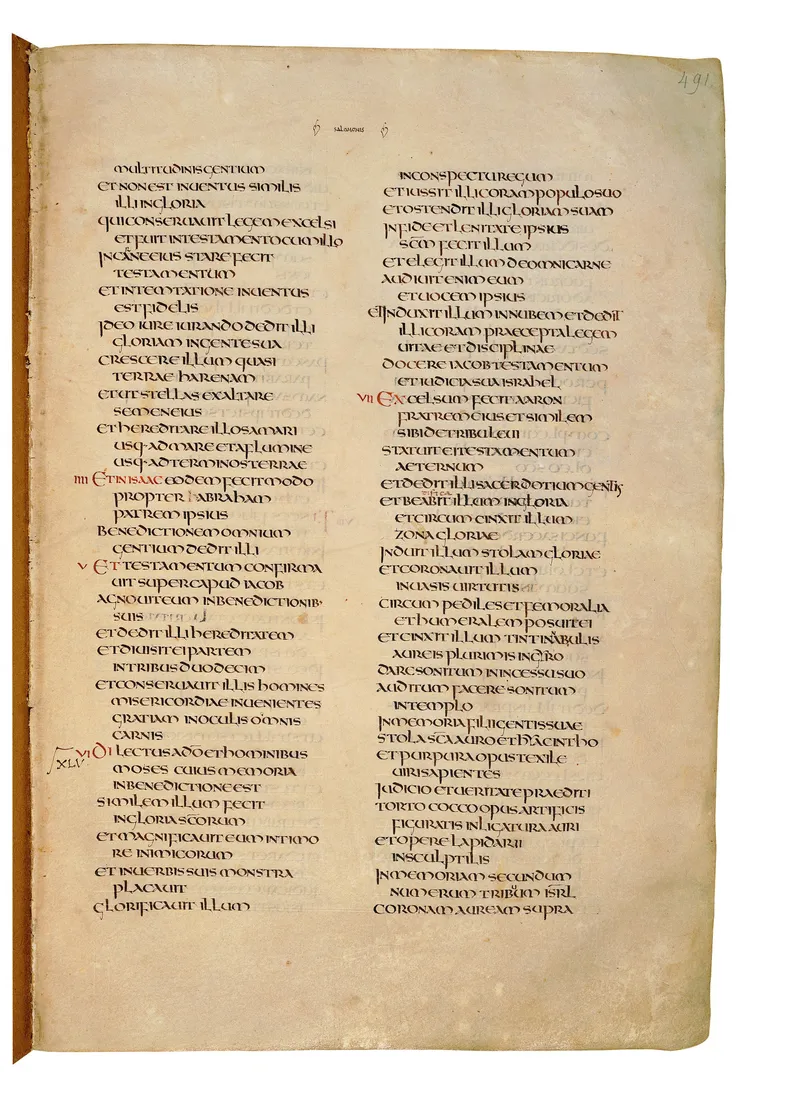 491
SALOMONIS
MULTITUDINIS GENTIUM
ET NON EST INUENTUS SIMILIS
ILLI IN GLORIA
QUI CONSERUAUIT LEGEM EXCELSI
ET FUIT IN TESTAMENTO CUM ILLO
IN CARNE EIUS STARE FECIT
TESTAMENTUM
ET IN TEMTATIONE INUENTUS
EST FIDELIS
IDEO IURE IURANDO DEDIT ILLI
GLORIAM IN GENTE SUA
CRESCERE ILLUM QUASI
TERRAE HARENAM
ET UT STELLAS EXALTARE
SEMEN EIUS
ET HEREDITARE ILLOS A MARI
USQ· AD MARE ET A FLUMINE
USQ· AD TERMINOS TERRAE
IIII ET IN ISAAC EODEM FECIT MODO
PROPTER ABRAHAM
PATREM IPSIUS
BENEDICTIONEM OMNIUM
GENTIUM DEDIT ILLI
V ET TESTAMENTUM CONFIRMA
UIT SUPER CAPUD IACOB
AGNOUIT EUM IN BENEDICTIONIB·
SUIS
ET DEDIT ILLI HEREDITATEM
ET DIUISIT EI PARTEM
IN TRIBUS DUODECIM
ET CONSERUAUIT ILLIS HOMINES
MISERICORDIAE INUENIENTES
GRATIAM IN OCULIS OMNIS
CARNIS
XLV VI DILECTUS A DŌ ET HOMINIBUS
MOSES CUIUS MEMORIA
IN BENEDICTIONE EST
SIMILEM ILLUM FECIT
IN GLORIA SCŌRUM
ET MAGNIFICAUIT EUM IN TIMO
RE INIMICORUM
ET IN UERBIS SUIS MONSTRA
PLACAUIT
GLORIFICAUIT ILLUM
IN CONSPECTU REGUM
ET IUSSIT ILLI CORAM POPULO SUO
ET OSTENDIT ILLI GLORIAM SUAM
IN FIDE ET LENITATE IPSIUS
SCM̄ FECIT ILLUM
ET ELEGIT ILLUM DE OMNI CARNE
AUDIUIT ENIM EUM
ET UOCEM IPSIUS
ET INDUXIT ILLUM IN NUBEM ET DEDIT
ILLI CORAM PRAECEPTA LEGEM
UITAE ET DISCIPLINAE
DOCERE IACOB TESTAMENTUM
ET IUDICIA SUA ISRAHEL
VII EXCELSUM FECIT AARON
FRATREM EIUS ET SIMILEM
SIBI DE TRIBU LEUI
STATUIT EI TESTAMENTUM
AETERNUM
ET DEDIT ILLI SACERDOTIUM GENTIS
ET BEABIT ILLUM IN GLORIA
ET CIRCUMCINXIT ILLUM
ZONA GLORIAE
INDUIT ILLUM STOLAM GLORIAE
ET CORONAUIT ILLUM
IN UASIS UIRTUTIS
CIRCUMPEDILES ET FEMORALIA
ET HUMERALEM POSUIT EI
ET CINXIT ILLUM TINTINABULIS
AUREIS PLURIMIS IN GYRO
DARE SONITUM IN INCESSU SUO
AUDITUM FACERE SONITUM
IN TEMPLO
IN MEMORIA FILII GENTIS SUAE
STOLA SCĀ AURO ET HYACINTHO
ET PURPURA OPUS TEXILE
UIRI SAPIENTES
IUDICIO ET UERITATE PRAEDITI
TORTO COCCO OPUS ARTIFICIS
FIGURATIS IN LIGATURA AURI
ET OPERE LAPIDARII
INSCULPTILIS
IN MEMORIAM SECUNDUM
NUMERUM TRIBUUM ISRL̄
CORONAM AUREAM SUPRA